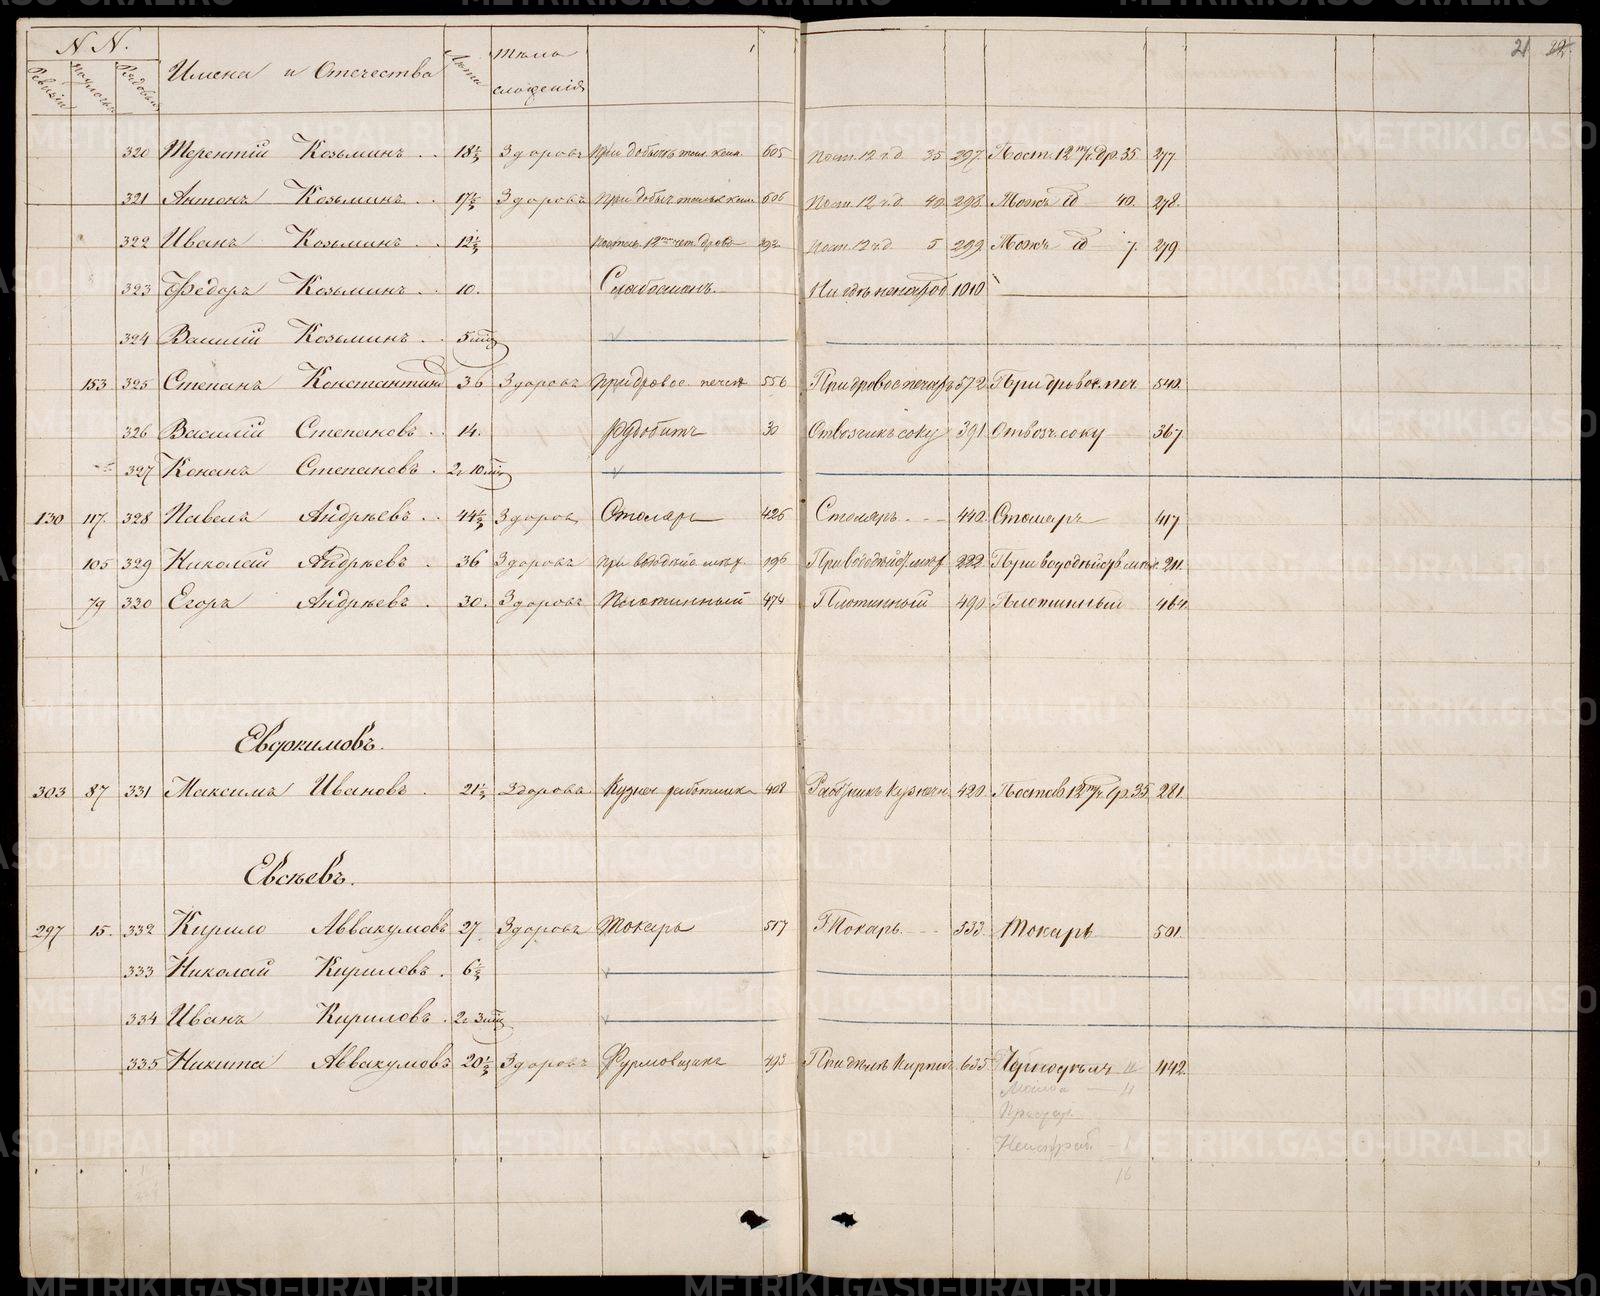 N N.
21 22
Ревизіи
Рядовыя
Имена и Отечества
Лѣта
Тѣло
сложенія
320 Терентій Козьминъ . . 18½ Здоровъ При добычѣ 605 пост. 12 ч. д. 35 297. Пост. 12 ч. др. 35 277
321 Антонъ Козьминъ . . 17½ Здоровъ При добыч 606 Пост. 12 ч. д. 40 298. Тожъ id 40. 278.
322 Иванъ Козьминъ . . 12½ Постав. 12 чет. дровъ 292 Пост. 12 ч. д 5 299 Тожъ id 7. 279
323 Ѳедоръ Козьминъ . . 10. Слабосиленъ. Ни гдѣ 1010
324 Василій Козьминъ . . 5 мѣс
153 325 Степанъ Константин 36 Здоровъ При дровос печах 556 При дровос печах 572 При дровос. печ 540.
326 Василій Степановъ . . 14. Рудобитъ 30 Отвозчикъ соку 391 Отвоз. соку 367
327 Кононъ Степановъ . 2 г 10 мѣс
130 117. 328 Павелъ Андрѣевъ . . 44½ Здоров Столяръ 426 Столяръ. 440. Столяръ 417
105 329 Николай Андрѣевъ . 36 Здоровъ При 196 При 222. При 211.
79 320 Егоръ Андрѣевъ . 30. Здоровъ Плотинный 474 Плотинный 490 Плотинный 464.
Евдокимовъ.
303 87 331 Максимъ Ивановъ . 21½ Здоровъ Кузнеч работникъ 408 Работникъ Кузнечн 420. Постав 12 ч. др. 35. 281.
Евсѣевъ.
297 15. 332 Кирило Аввакумовъ 27. Здоровъ Токарь 517 Токарь. 533. Токарь 501.
333 Николай Кириловъ . 6½
334 Иванъ Кириловъ . 2 г 3 мѣс
335 Никита Аввакумовъ 20½ Здоровъ Фурмовщикъ 493 При дѣлѣ Кирпич. 635. 442.
16
METRIKI.GASO-URAL.RU